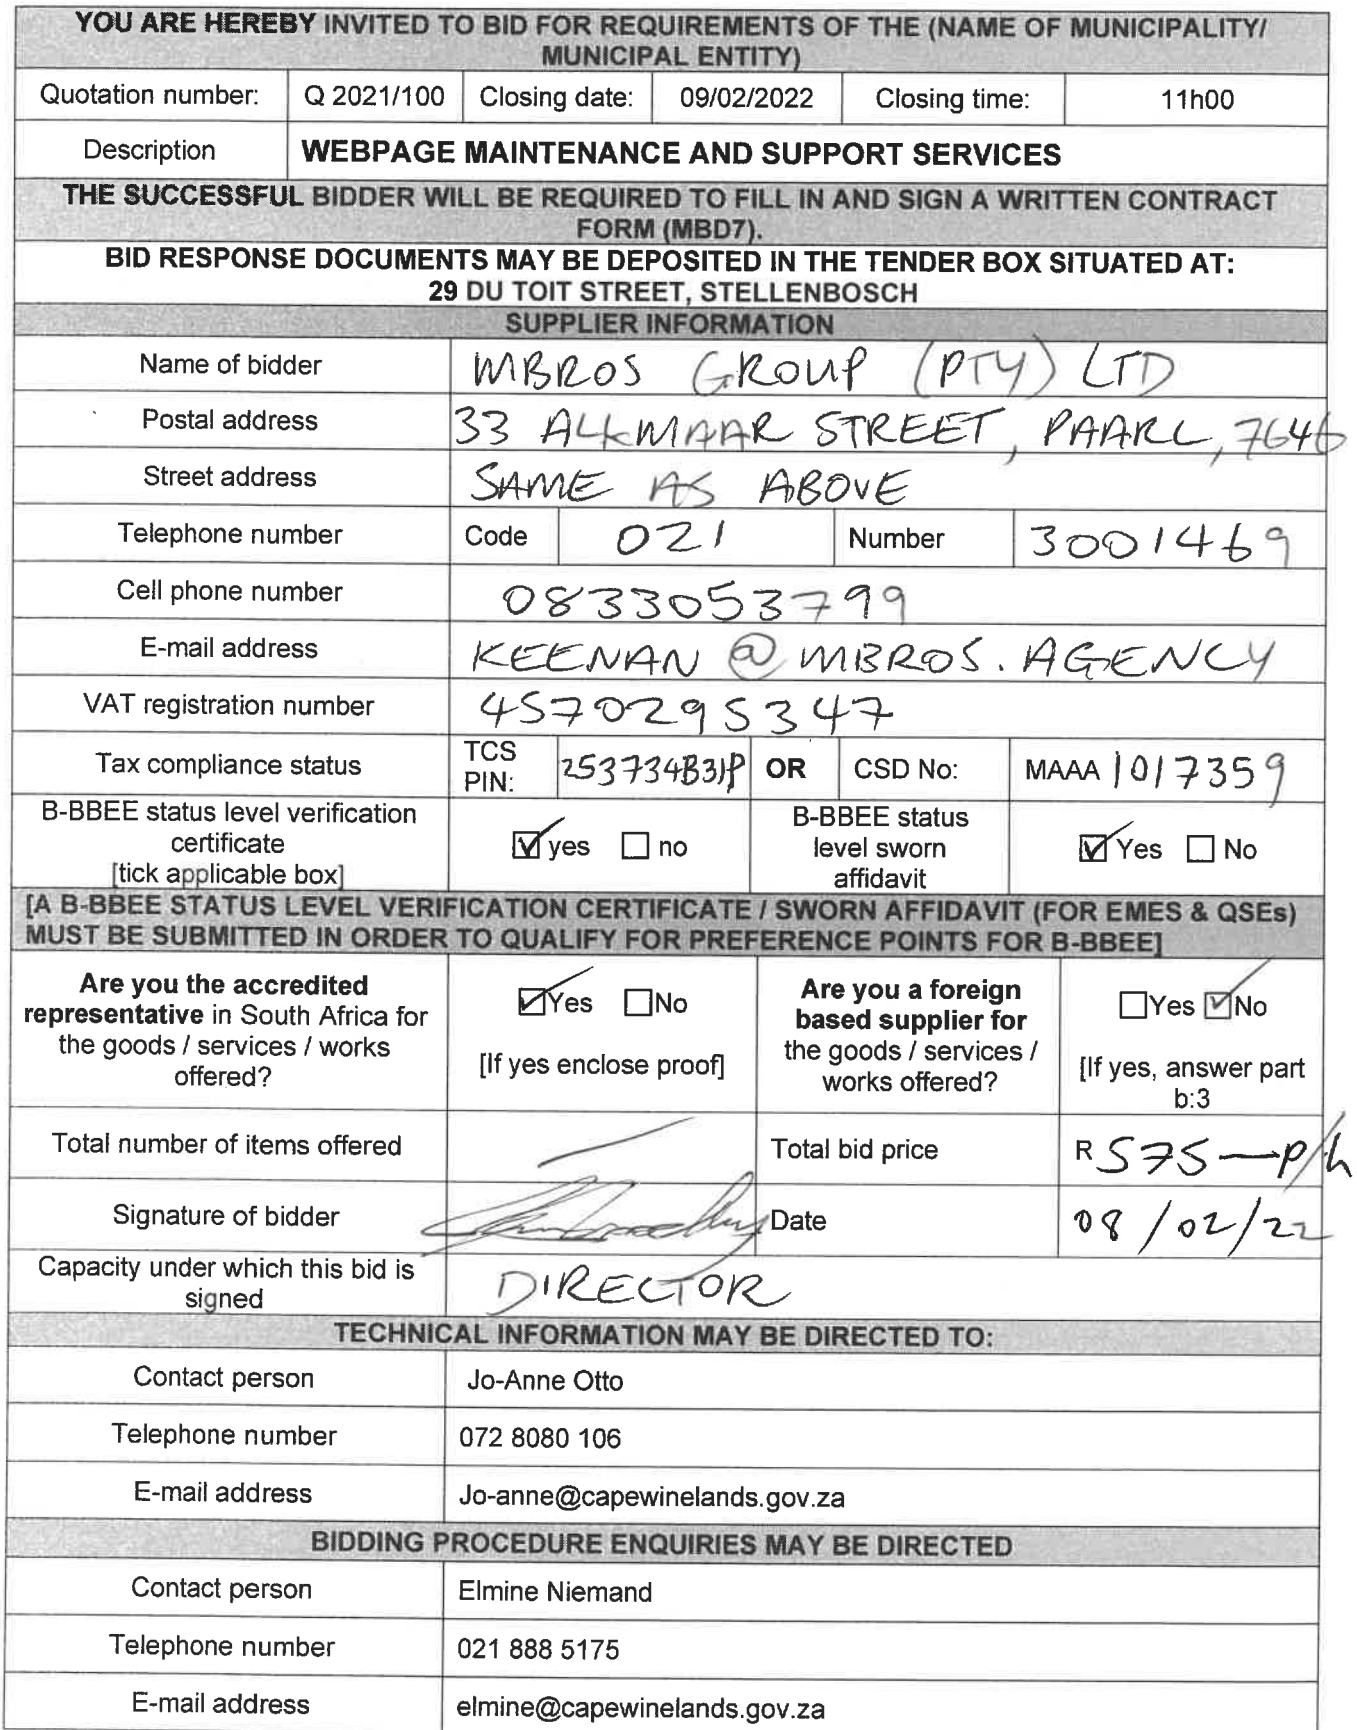 YOU ARE HEREBY INVITED TO BID FOR REQUIREMENTS OF THE (NAME OF MUNICIPALITY/
MUNICIPAL ENTITY)
Quotation number: Q 2021/100 Closing date: 09/02/2022 Closing time: 11h00
Description WEBPAGE MAINTENANCE AND SUPPORT SERVICES
THE SUCCESSFUL BIDDER WILL BE REQUIRED TO FILL IN AND SIGN A WRITTEN CONTRACT
FORM (MBD7).
BID RESPONSE DOCUMENTS MAY BE DEPOSITED IN THE TENDER BOX SITUATED AT:
29 DU TOIT STREET, STELLENBOSCH
SUPPLIER INFORMATION
Name of bidder MBROS GROUP (PTY) LTD
Postal address 33 ALKMAAR STREET, PAARL, 7646
Street address SAME AS ABOVE
Telephone number Code 021 Number 3001469
Cell phone number 0833053799
E-mail address KEENAN@MBROS.AGENCY
VAT registration number 4570295347
Tax compliance status TCS PIN: OR CSD No: MAAA 1017359
B-BBEE status level verification
certificate
[tick applicable box]
yes no
B-BBEE status
level sworn
affidavit
Yes No
[A B-BBEE STATUS LEVEL VERIFICATION CERTIFICATE / SWORN AFFIDAVIT (FOR EMES & QSEs)
MUST BE SUBMITTED IN ORDER TO QUALIFY FOR PREFERENCE POINTS FOR B-BBEE]
Are you the accredited
representative in South Africa for
the goods / services / works
offered?
Yes No
[If yes enclose proof]
Are you a foreign
based supplier for
the goods / services /
works offered?
Yes No
[If yes, answer part
b:3
Total number of items offered Total bid price R 575 — p/h
Signature of bidder Date 08/02/22
Capacity under which this bid is
signed
DIRECTOR
TECHNICAL INFORMATION MAY BE DIRECTED TO:
Contact person Jo-Anne Otto
Telephone number 072 8080 106
E-mail address Jo-anne@capewinelands.gov.za
BIDDING PROCEDURE ENQUIRIES MAY BE DIRECTED
Contact person Elmine Niemand
Telephone number 021 888 5175
E-mail address elmine@capewinelands.gov.za